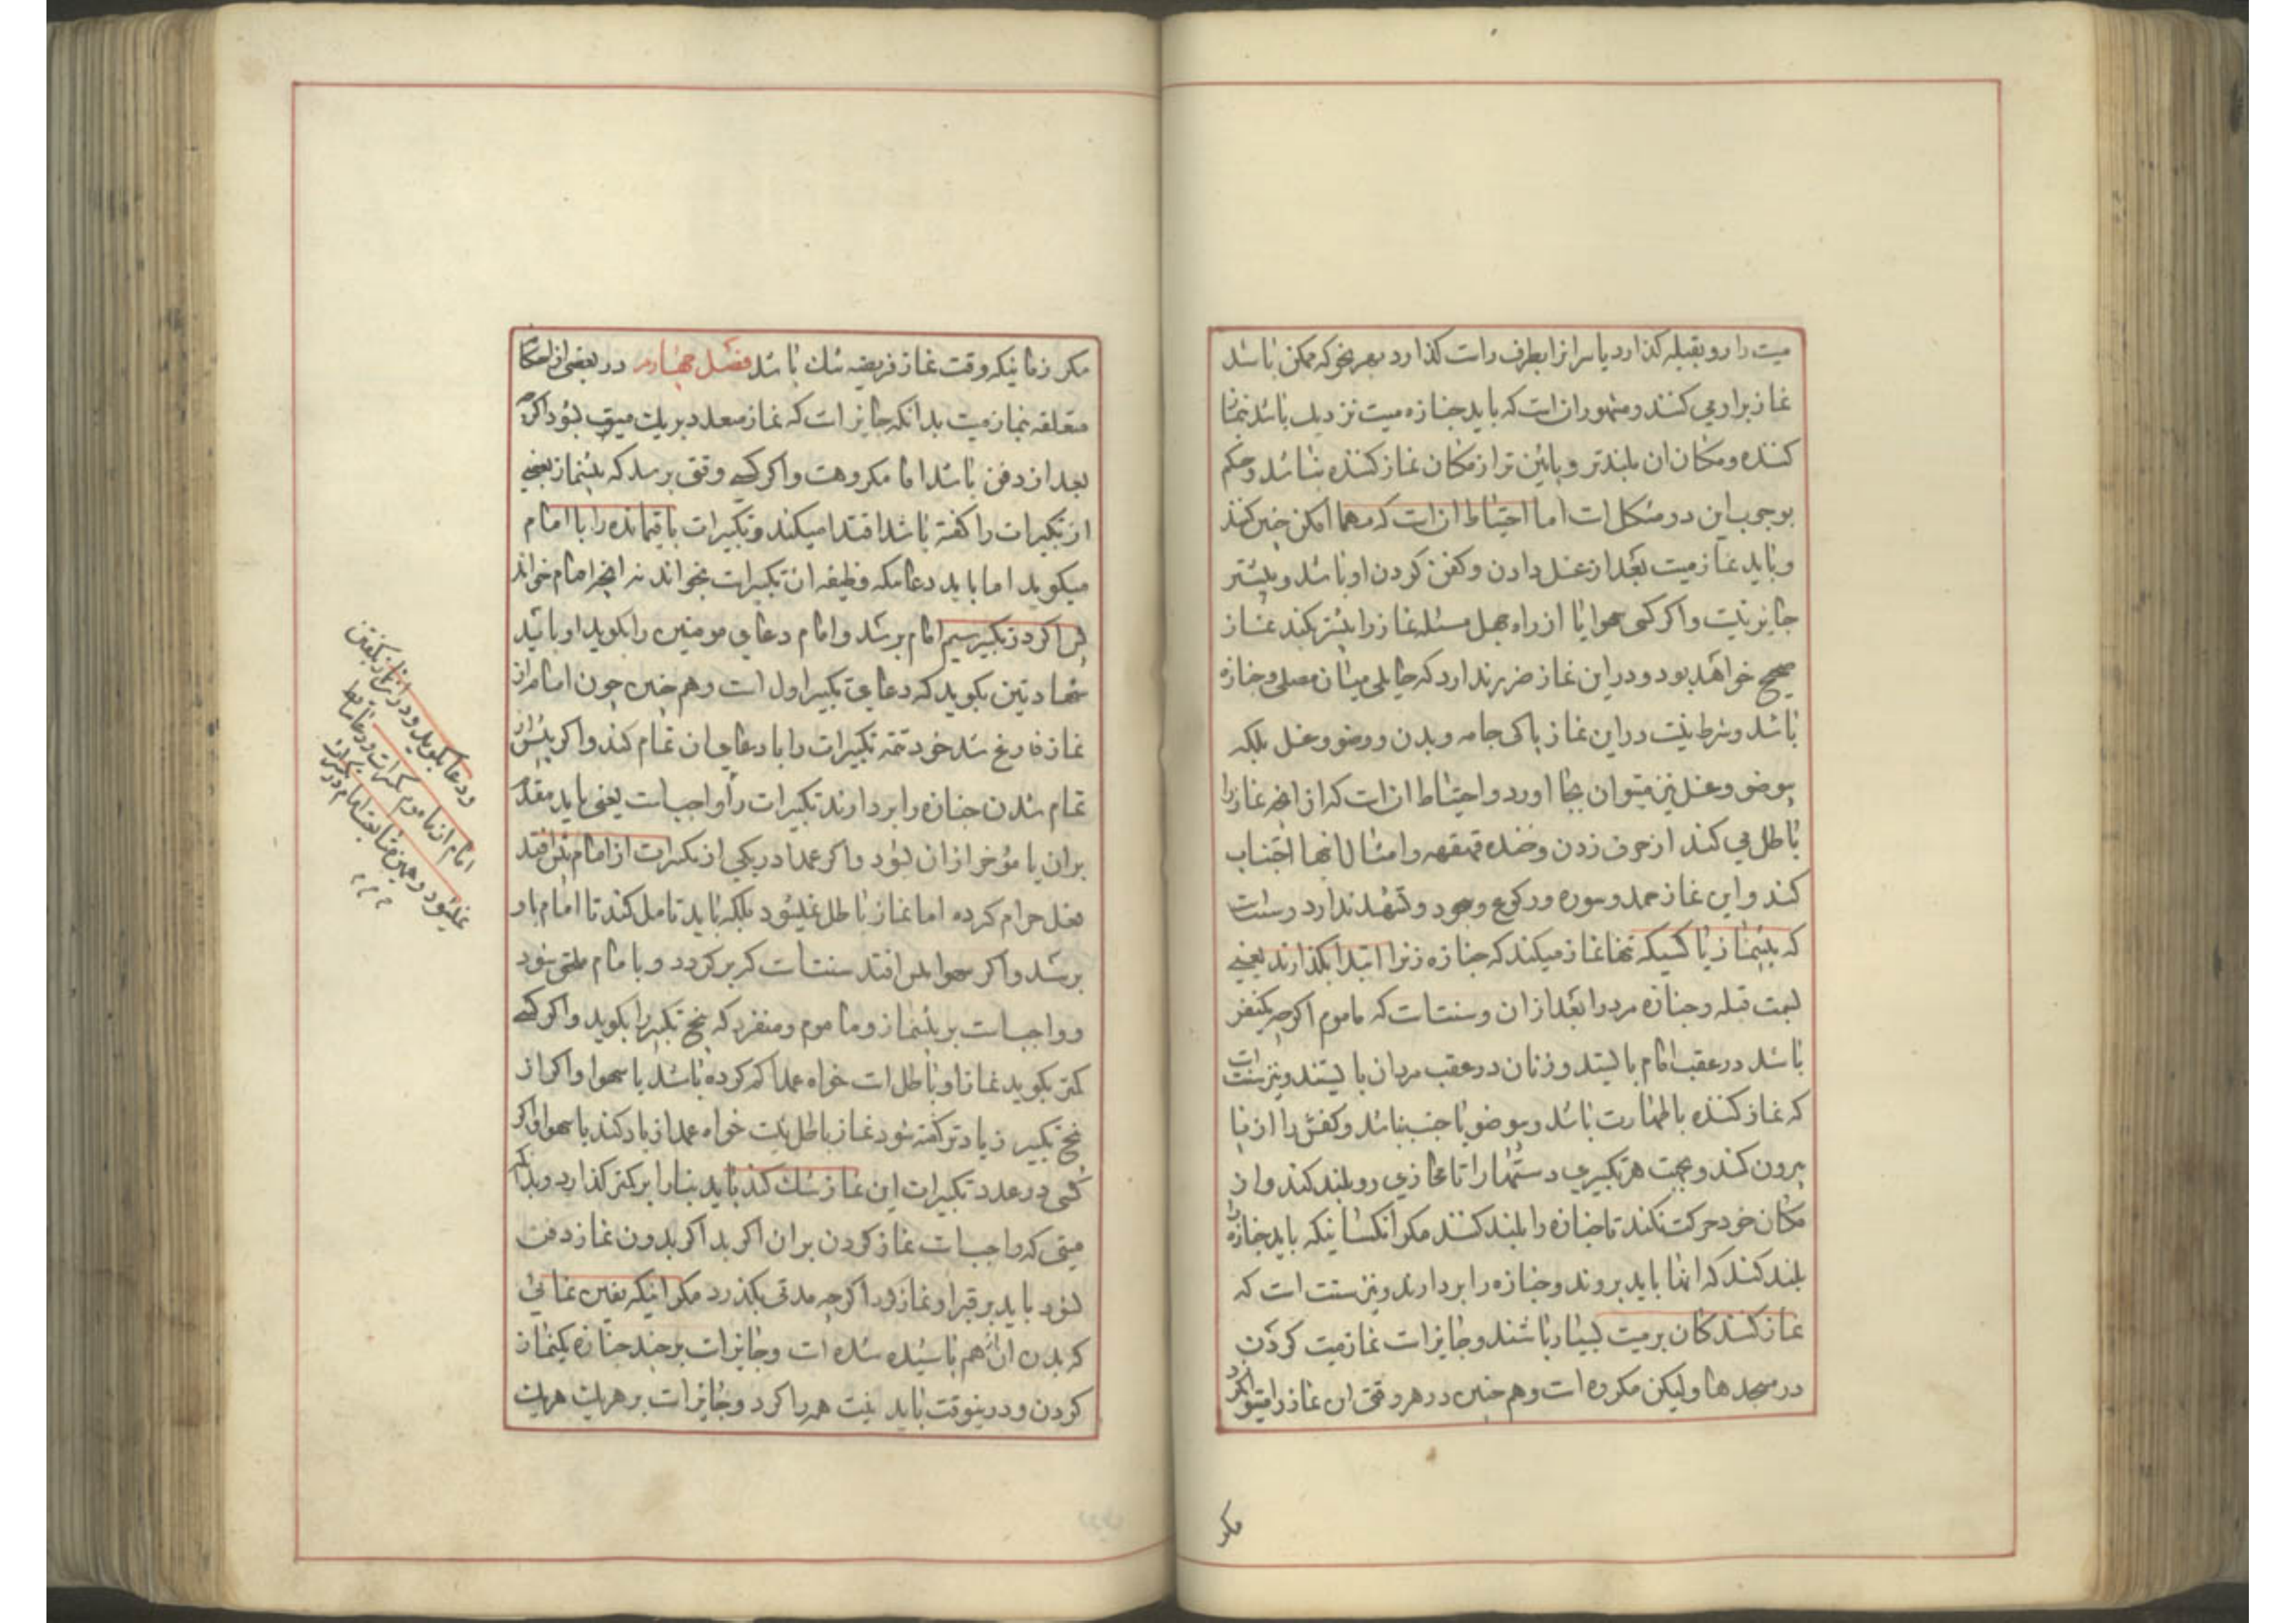 میت را رو بقبله کذارد یا سرانرا بطرف راست کذارد بهر نحو که ممکن باشد
نماز بر او می کنند و مشهور انست که باید جنازه میت نزدیک باشد بنماز
کننده و مکان ان بلندتر و پائین تر از مکان نماز کننده نباشد و حکم
بوجوب این دو مشکل است اما احتیاط ان است که مهما امکن چنین کنند
و باید نماز میت بعد از غسل دادن و کفن کردن او باشد و پیشتر
جایز نیست و اکر کسی سهوا یا از راه جهل مسئله نماز را پیشتر بکند نماز
صحیح خواهد بود و در این نماز ضرر ندارد که حایلی میان مصلی و جنازه
باشد و شرط نیست در این نماز پاکی جامه و بدن و وضو و غسل بلکه
بیوضو و غسل نیز میتوان بجا اورد و احتیاط ان است که از انچه نماز را
باطل می کند از حرف زدن و خنده قهقهه و امثال انها اجتناب
کند و این نماز حمد و سوره و رکوع و سجود و تشهد ندارد و سنت است
که پیشنماز یا کسیکه تنها نماز میکند که جنازه زنرا ابتدا بکذارند یعنی
بسمت قبله و جنازه مرد را بعد از ان و سنت است که ماموم اکرچه یکنفر
باشد در عقب امام بایستد و زنان در عقب مردان بایستند و نیز سنت است
که نماز کننده با طهارت باشد و بیوضو یا جنب نباشد و کفش را از پا
بیرون کند و بجهت هر تکبیری دستها را تا محاذی رو بلند کند و از
مکان خود حرکت نکند تا جنازه را بلند کنند مکر انکسانیکه باید جنازه را
بلند کنند که انها باید بروند و جنازه را بردارند و نیز سنت است که
نماز کنندکان بر میت بسیار باشند و جایز است نماز میت کردن
در مسجدها ولیکن مکروه است و هم چنین در هر وقتی ان نماز را میتوان کرد
مکر
مکر زمانیکه وقت نماز فریضه تنك باشد فصل چهارم در بعضی از احکام
متعلقه بنماز میت بدانکه جایز است که نماز متعدد بر یك میت بشود اکرچه
بعد از دفن باشد اما مکروهست و اکر کسی وقتی برسد که پیشنماز بعضی
از تکبیرات را کفته باشد اقتدا میکند و تکبیرات باقیمانده را با امام
میکوید اما باید دعائیکه وظیفه ان تکبیرات بخواند نه انچه امام خواند
پس اکر در تکبیر سیم امام برسد و امام دعای مومنین را بکوید او باید
شهادتین بکوید که دعای تکبیر اول است و هم چنین چون امام از
نماز فارغ شد خود تتمه تکبیرات را با دعای ان تمام کند و اکر پیش از
تمام شدن جنازه را بردارند تکبیرات را واجب است یعنی باید مقدم
بران یا مؤخر از ان نشود و اکر عمدا در یکی از تکبیرات از امام پیش افتد
فعل حرام کرده اما نماز باطل نمیشود بلکه باید تامل کند تا امام باو
برسد و اکر سهوا پیش افتد سنت است که برکردد و با امام ملحق شود
و واجب است بر پیشنماز و ماموم و منفرد که پنج تکبیر را بکوید و اکر کسی
کمتر بکوید نماز او باطل است خواه عمدا کم کرده باشد یا سهوا و اکر از
پنج تکبیر زیادتر کفته شود نماز باطل نیست خواه عمدا زیاد کند یا سهوا و اکر
کسی در عدد تکبیرات این نماز شك کند باید بنا را بر کمتر کذارد و بدانکه
میتی که واجب است نماز کردن بران اکر بدون نماز دفن
شود باید بر قبر او نماز کرد اکرچه مدتی بکذرد مکر اینکه یقین نمائی
که بدن ان هم پاشیده شده است و جایز است بر چند جنازه یکنماز
کردن و در ینوقت باید نیت همه را کرد و جایز است بر هریك هریك
و دعا بکوید و در این نماز بکفتن
امام از ماموم تکبیرات و دعا ساقط
نمیشود و همین متابعت امام در تکبیرات